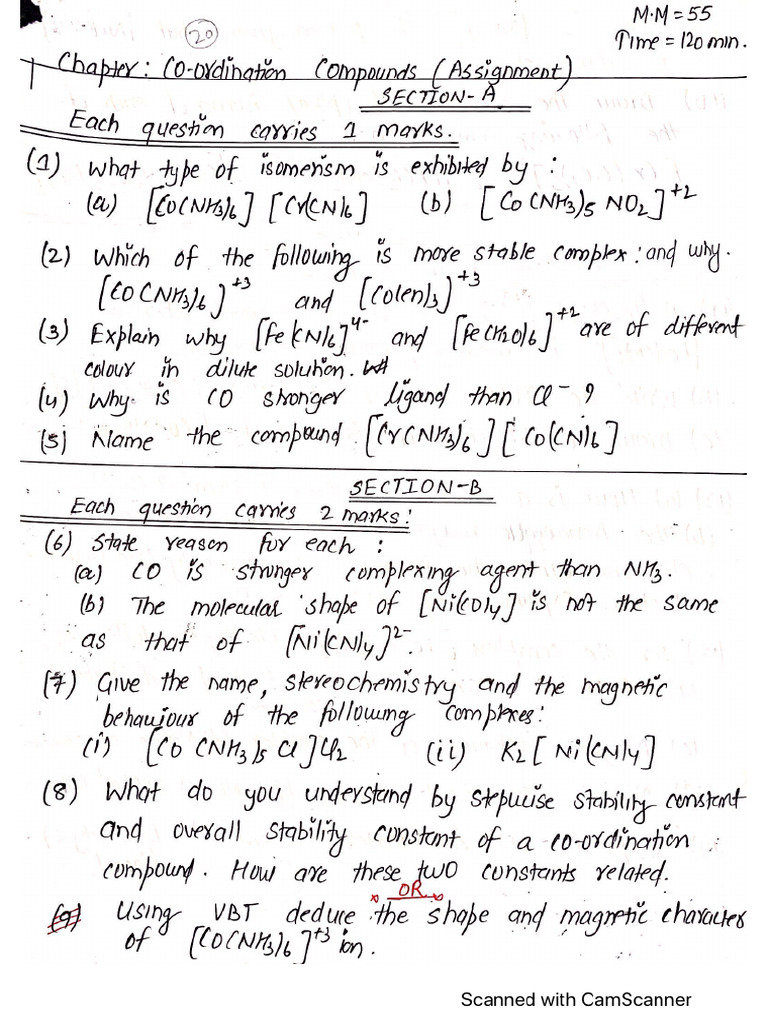 20
M.M = 55
Time = 120 min.
Chapter: CO-ordination Compounds (Assignment)
SECTION-A
Each question carries 1 marks.
(1) What type of isomerism is exhibited by :
(a) [Co(NH3)6] [Cr(CN)6] (b) [Co(NH3)5 NO2]+2
(2) Which of the following is more stable complex: and why.
[Co(NH3)6]+3 and [Co(en)3]+3
(3) Explain why [Fe(CN)6]4- and [Fe(H2O)6]+2 are of different
colour in dilute solution.
(4) Why is CO stronger ligand than Cl- ?
(5) Name the compound [Cr(NH3)6] [Co(CN)6]
SECTION-B
Each question carries 2 marks:
(6) State reason for each :
(a) CO is stronger complexing agent than NH3.
(b) The molecular shape of [Ni(CO)4] is not the same
as that of [Ni(CN)4]2-.
(7) Give the name, stereochemistry and the magnetic
behaviour of the following complexes:
(i) [Co(NH3)5 Cl]Cl2 (ii) K2[Ni(CN)4]
(8) What do you understand by stepwise stability constant
and overall stability constant of a co-ordination
compound. How are these two constants related.
x OR x
(9) Using VBT deduce the shape and magnetic character
of [Co(NH3)6]+3 ion.
Scanned with CamScanner